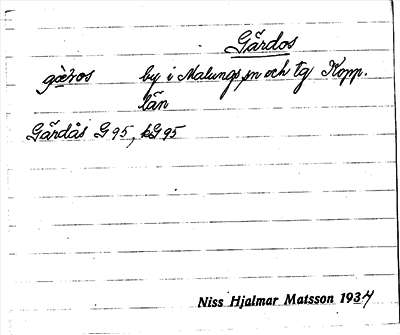 Gärdos
gæ̀ros by i Malungs sn och tg Kopp.
län
Gärdås G 95, kG 95
Niss Hjalmar Matsson 1934